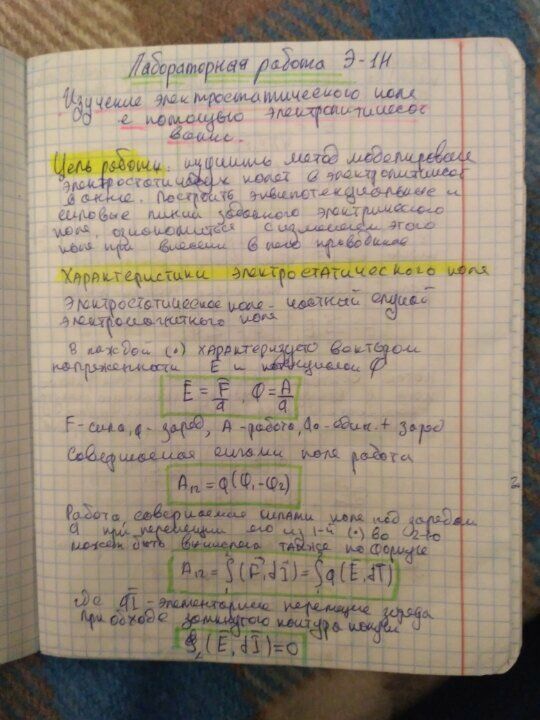 Лабораторная работа Э-1Н
Изучение электростатического поля
с помощью электролитической
ванны.
Цель работы: изучить метод моделирован
электростатических полей в электролитическ
ванне. Построить эквипотенциальные и
силовые линии заданного электрического
поля, ознакомиться с изменением этого
поля при внесении в него проводника
Характеристики электростатического поля
Электростатическое поле - частный случай
электромагнитного поля
В каждой (•) характеризуется вектором
напряженности E и потенциалом φ
E̅ = F̅/q , φ = A/q
F-сила, q - заряд, A - работа, q₀ - един. + заряд
Совершаемая силами поля работа
A₁₂ = q(φ₁-φ₂)
Работа, совершаемая силами поля над зарядом
q при перемещении его из 1-й (•) во 2-ю
может быть вычислена также по формуле
A₁₂ = ∫(F̅, dl̅) = ∫q(E̅, dl̅)
где dl̅ - элементарное перемещение заряда
При обходе замкнутого контура получим
∮L(E̅, dl̅)=0